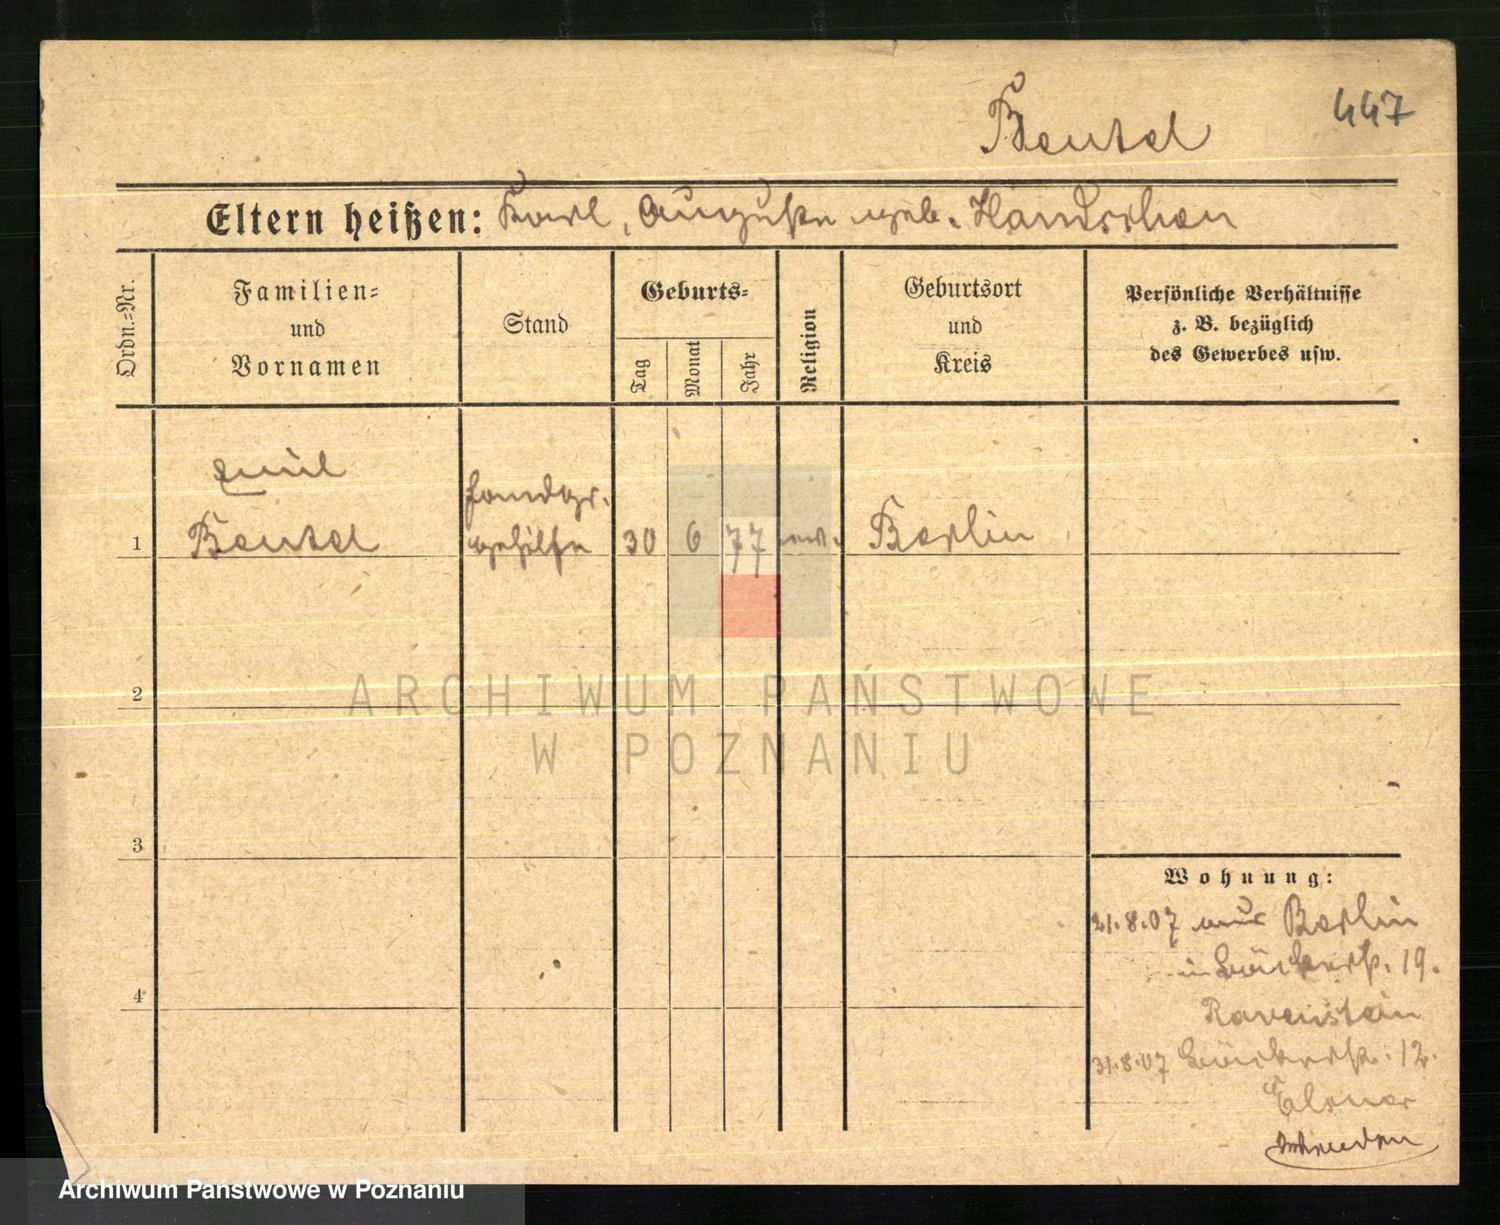 447
Beutel
Eltern heißen: Karl, Auguste geb. Handschon
Ordn.=Nr.
Familien=
und
Vornamen
Stand
Geburts=
Tag
Monat
Jahr
Religion
Geburtsort
und
Kreis
Persönliche Verhältnisse
z. B. bezüglich
des Gewerbes usw.
1
Emil
Beutel
gehilfe
30
6
77
ev.
Berlin
2
ARCHIWUM PAŃSTWOWE
W POZNANIU
3
4
Wohnung:
21.8.07 aus Berlin
19.
Ravenstein
31.8.07 12.
Elsner
Archiwum Państwowe w Poznaniu